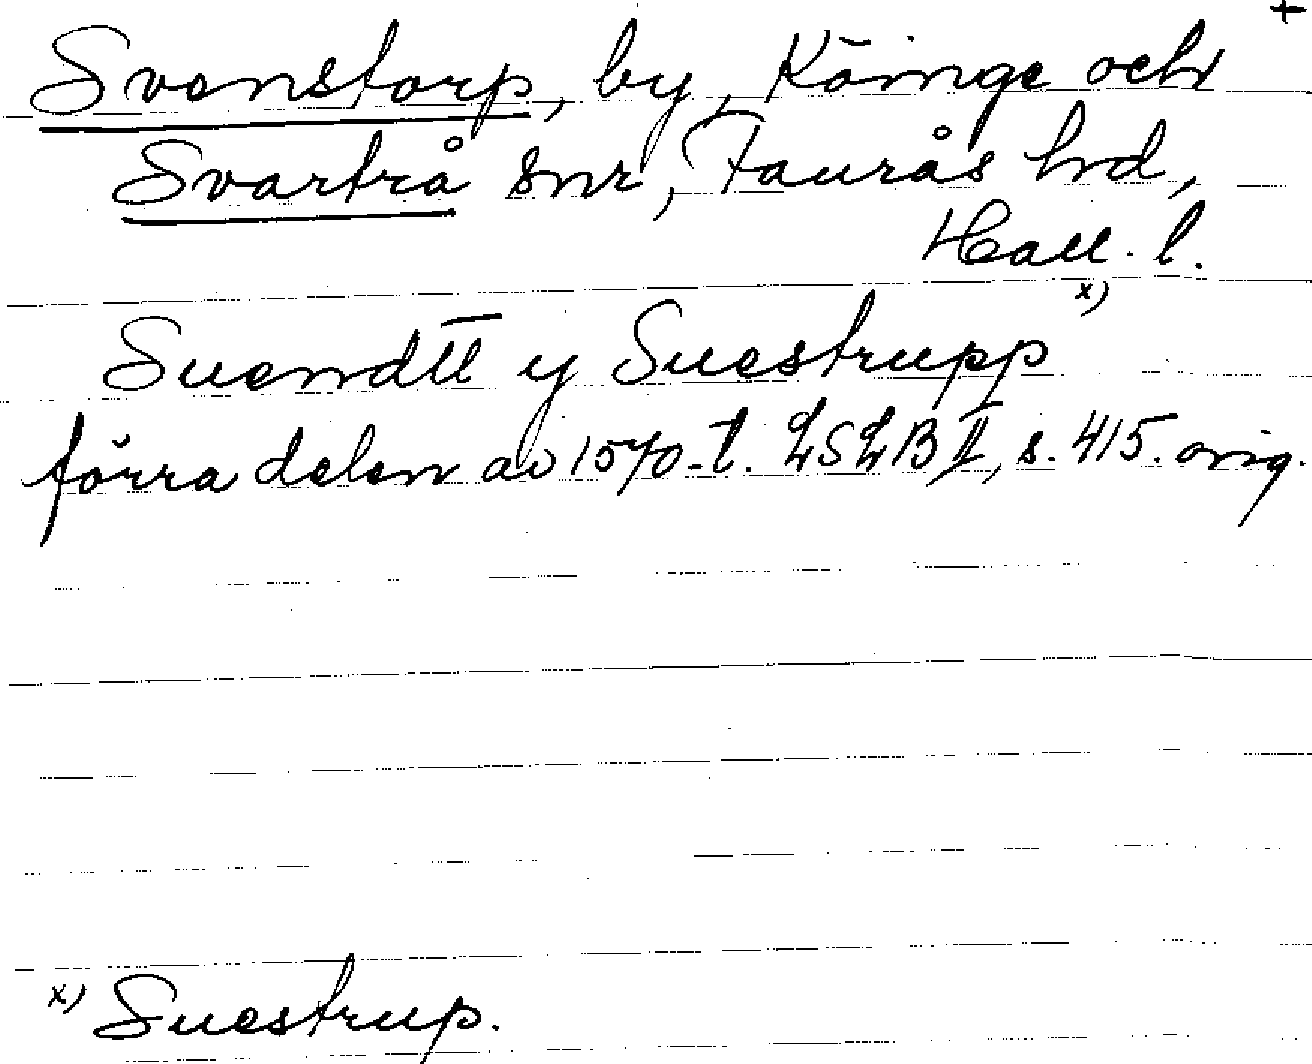 +
Svenstorp, by, Köinge och
Svartrå snr, Faurås hd,
Hall. l.
Suendtt y Suestrupp x)
förra delen av 1570-t. LSLB I, s. 415. orig.
x) Suestrup.